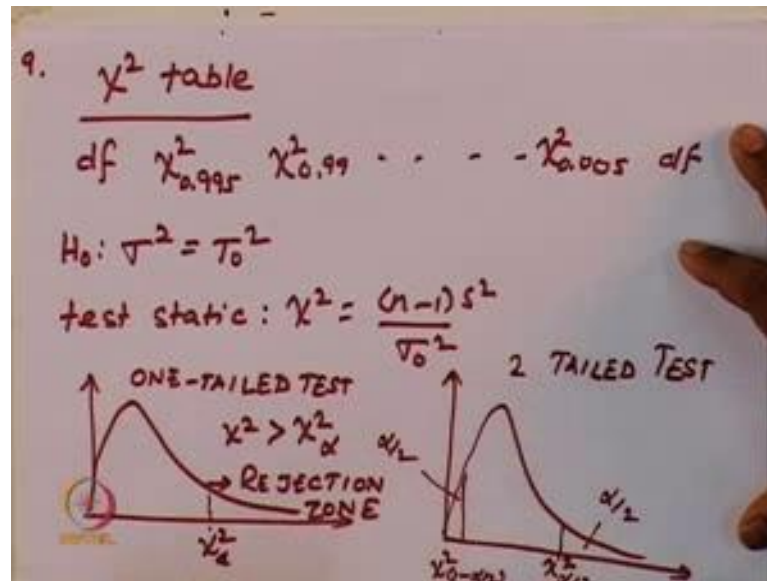 9. χ² table
df χ²0.995 χ²0.99 · · · - χ²0.005 df
H₀: σ² = σ₀²
test static: χ² = (n-1)s² / σ₀²
ONE-TAILED TEST
χ² > χ²α
→ REJECTION
ZONE
χ²α
2 TAILED TEST
α/2
α/2